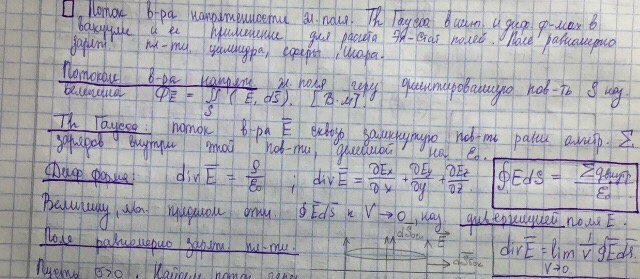 Поток в-ра напряженности эл. поля. Th Гаусса в инт. и диф. ф-мах в
вакууме и её применение для расчёта эл-стат полей. Поле равномерно
заряж. пл-ти, цилиндра, сферы, шара.
Потоком в-ра напряж. эл. поля через ориентированную пов-ть S наз.
величина Φ_E⃗ = ∬_S (E⃗, dS⃗). [В·м]
Th Гаусса: поток в-ра E⃗ сквозь замкнутую пов-ть равен алгебр. Σ
зарядов внутри этой пов-ти, делённой на ε₀.
Диф. форма: div E⃗ = ρ/ε₀ ; div E⃗ = ∂Ex/∂x + ∂Ey/∂y + ∂Ez/∂z.
∮ E⃗dS⃗ = Σqвнутр/ε₀
Величину, явл. пределом отн. ∮E⃗dS⃗ к V→0, наз. дивергенцией поля E.
Поле равномерно заряж. пл-ти.
dSбок
E⃗
div E⃗ = lim V→0 1/V ∮E⃗dS⃗
Пусть σ>0. Найдём поток через